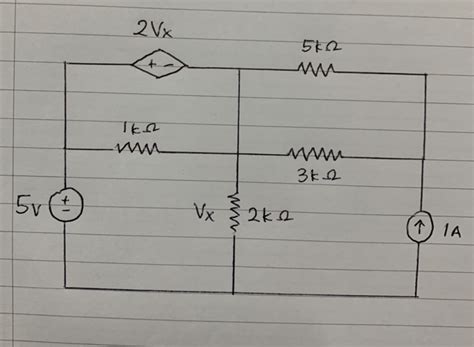 2Vx
5kΩ
+ -
1kΩ
3kΩ
5V
+
-
Vx
2kΩ
↑
1A